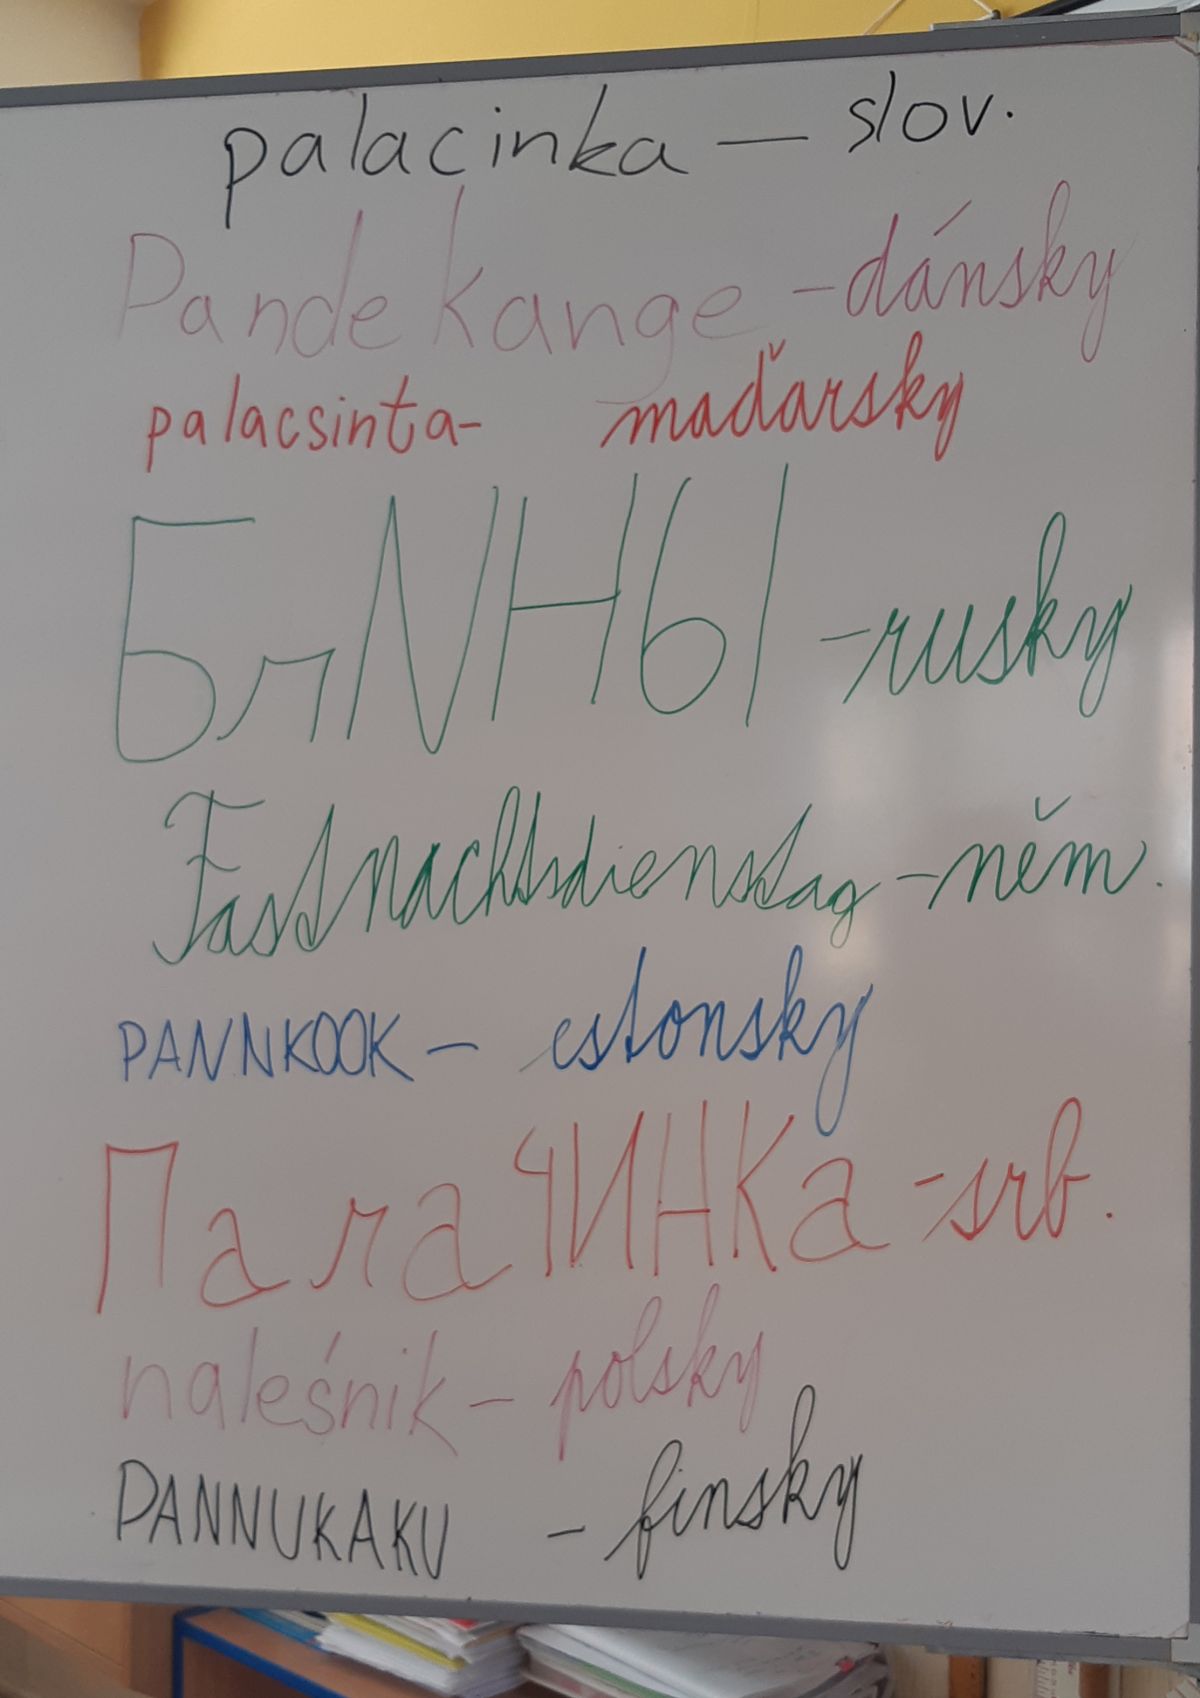 palacinka – slov.
Pandekange – dánsky
palacsinta- maďarsky
БлNНЫ – rusky
Fastnachtsdienstag – něm.
PANNKOOK – estonsky
ПалаЧИНКа – srb.
naleśnik – polsky
PANNUKAKU – finsky